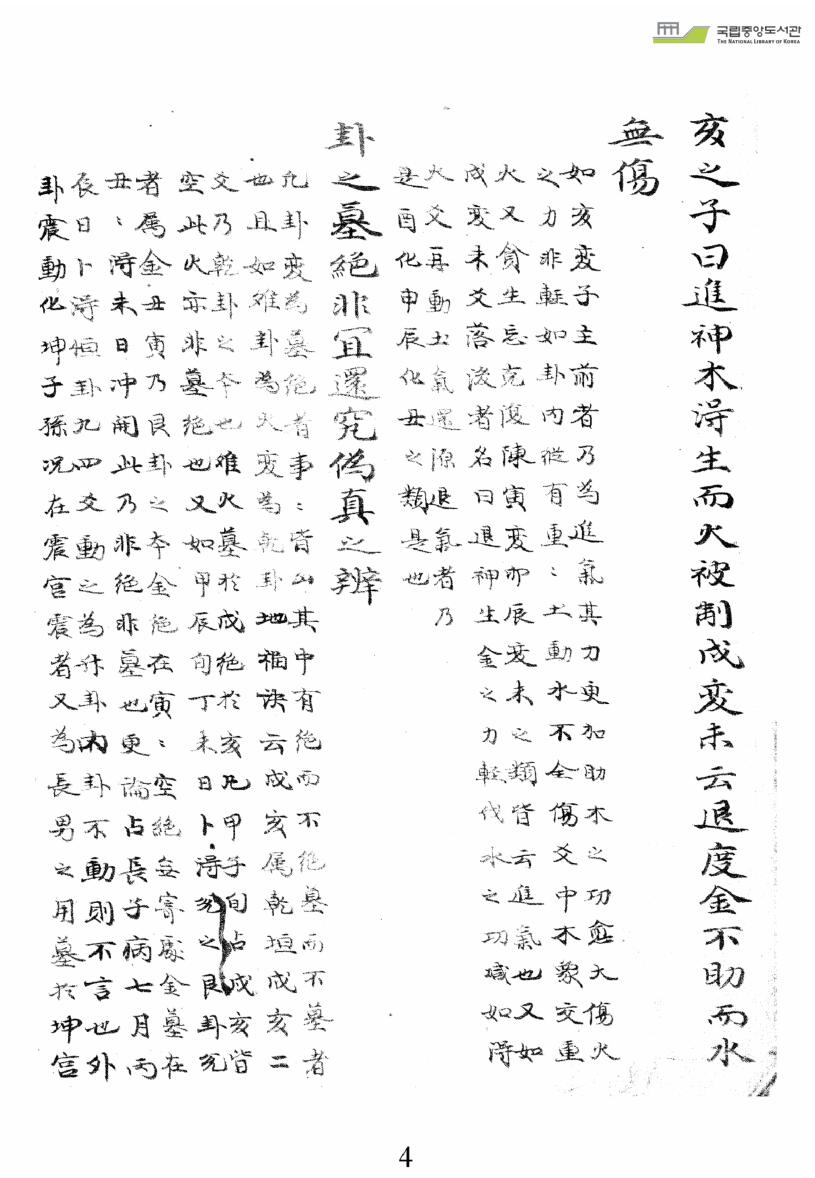 국립중앙도서관
THE NATIONAL LIBRARY OF KOREA
亥之子曰進神木淂生而火被制戍変未云退度金不助而水
無傷
如亥変子主前者乃為進氣其力更加助木之功愈大傷火
之力非輕如卦内縱有重〻土動水不全傷爻中木象交重
火又貪生忘克復陳寅変卯辰変未之類皆云進氣也又如
戍変未爻落後者名曰退神生金之力輕伐水之功減如淂
火爻再動土氣還源退氣者乃
是酉化申辰化丑之類是也
卦之墓絕非冝還究偽真之辨
凢卦変為墓絕者事〻皆凶其中有絕而不絕墓而不墓者
也且如难卦為火変為乾卦地福訣云戍亥属乾垣戍亥二
爻乃乾卦之夲也难火墓於戍絕於亥凢甲子旬占戍亥皆
空此火亦非墓絕也又如甲辰旬丁未日卜淂兊之艮卦兊
者属金丑寅乃艮卦之夲金絕在寅〻空絕無寄處金墓在
丑〻淂未日冲開此乃非絕非墓也更論占長子病七月丙
辰日卜淂恒卦九四爻動之為升卦内卦不動則不言也外
卦震動化坤子孫况在震宫震者又為長男之用墓於坤宫
4